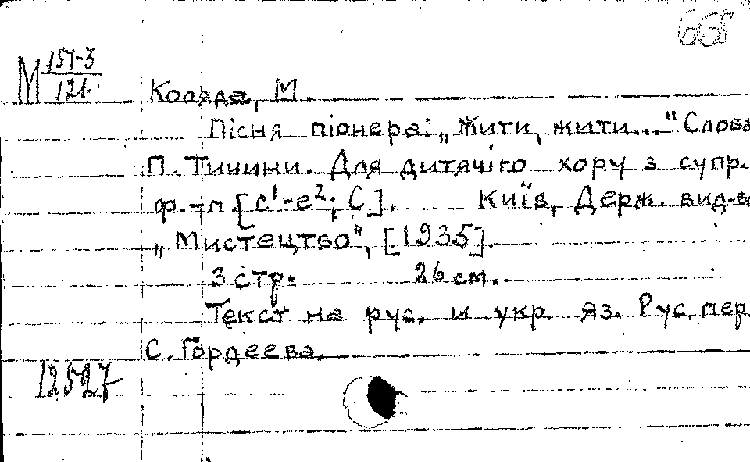 668
М 157-3
121
Коляда, М.
Пісня піонера: „Жити, жити..." Слова
П. Тичини. Для дитячого хору з супр.
ф.-п. [c¹-e²; C]. Київ, Держ. вид-во
„Мистецтво", [1935].
3 стр. 26 см.
Текст на рус. и укр. яз. Рус. пер.
С. Гордеева.
12527